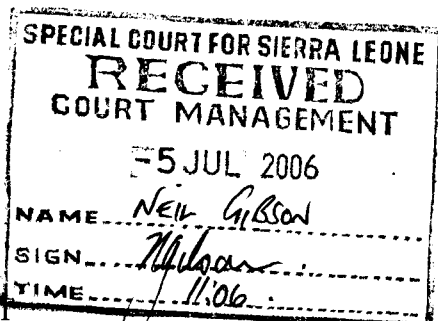 SPECIAL COURT FOR SIERRA LEONE
RECEIVED
COURT MANAGEMENT
-5 JUL 2006
NAME NEIL GIBSON
SIGN
TIME 11:06